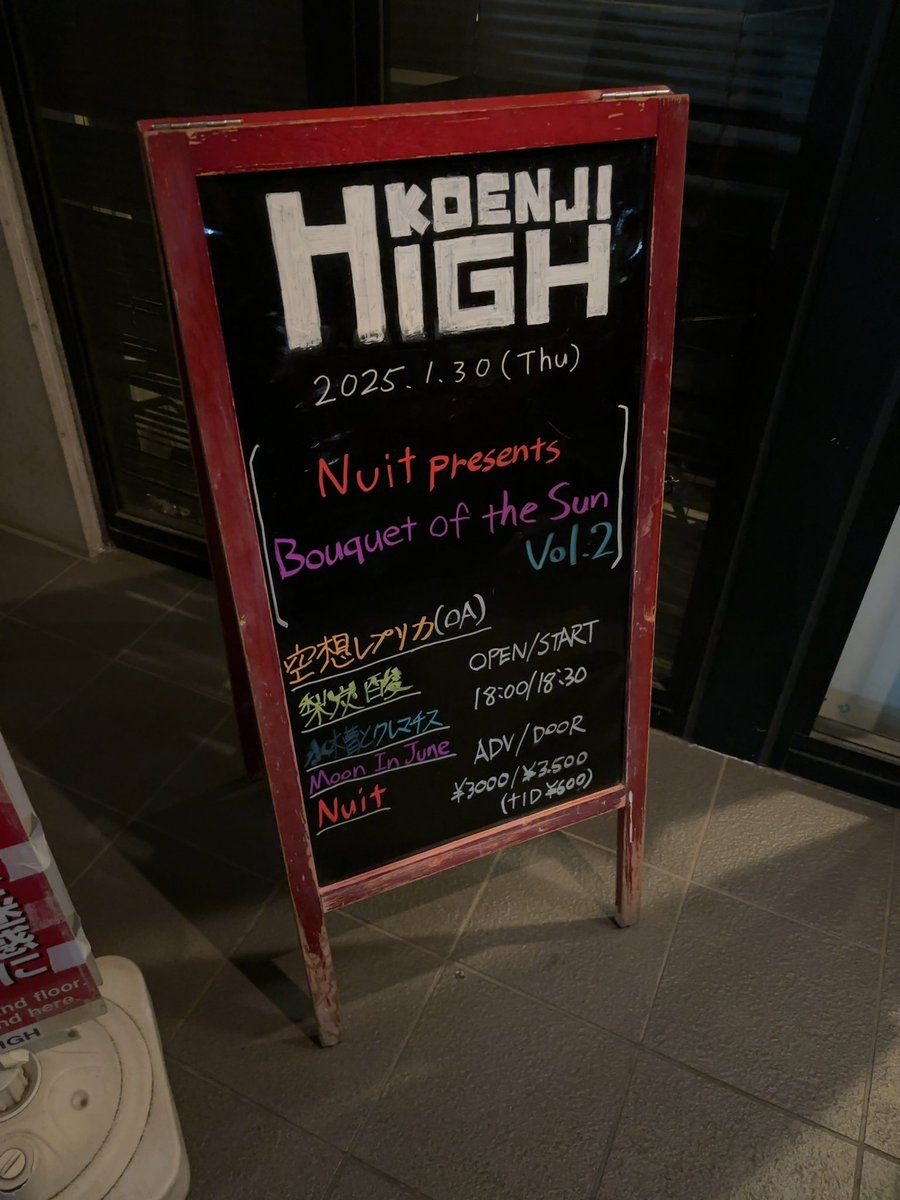 KOENJI
HIGH
2025.1.30 (Thu)
Nuit presents
Bouquet of the Sun
Vol.2
空想レプリカ(OA)
梨炭酸
水槽とクレマチス
Moon In June
Nuit
OPEN/START
18:00/18:30
ADV/DOOR
¥3000/¥3.500
(+1D ¥600)
nd floor.
nd here.
IGH